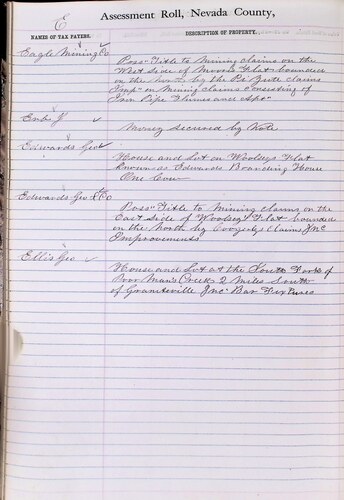 E
Assessment Roll, Nevada County,
NAMES OF TAX PAYERS.
DESCRIPTION OF PROPERTY.
Eagle Mining Co
Poss Title to Mining claims on the
West Side of Moores Flat bounded
on the North by the claims
Imp on Mining claims Consisting of
Iron Pipe Flumes and
Erbe J
Money Secured by Note
Edwards Geo
House and Lot on Woolseys Flat
Known as Edwards Boarding House
One Cow
Edwards Geo & Co
Poss Title to Mining claims on the
East Side of Woolseys Flat bounded
on the North by claims Inc
Improvements
Ellis Geo
House and Lot at the South Fork of
Poor Man's Creek 2 Miles South
of Graniteville Inc Bar Fixtures